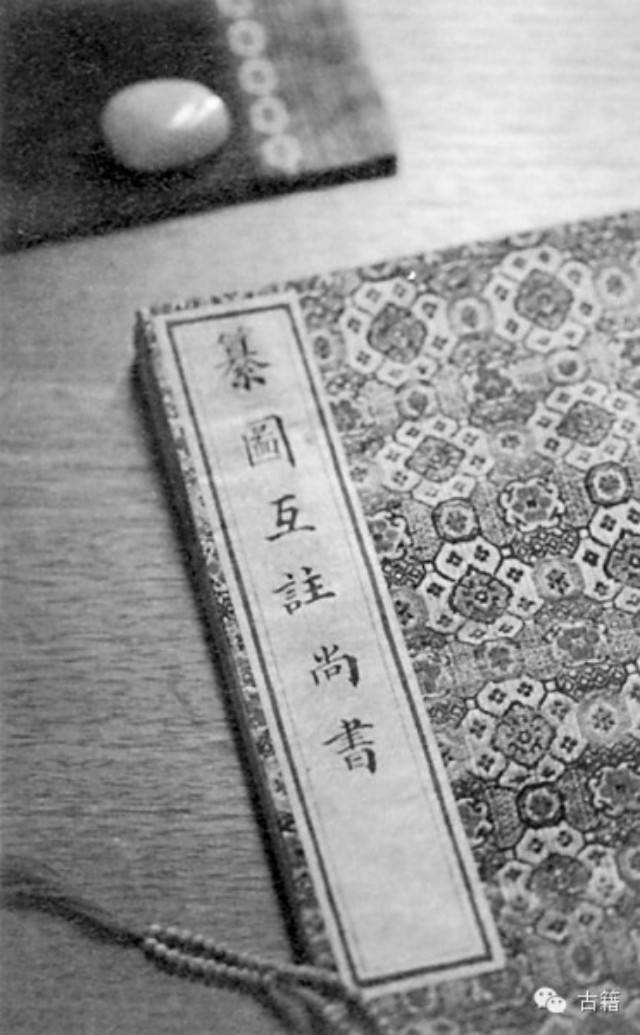 纂圖互註尚書
古籍